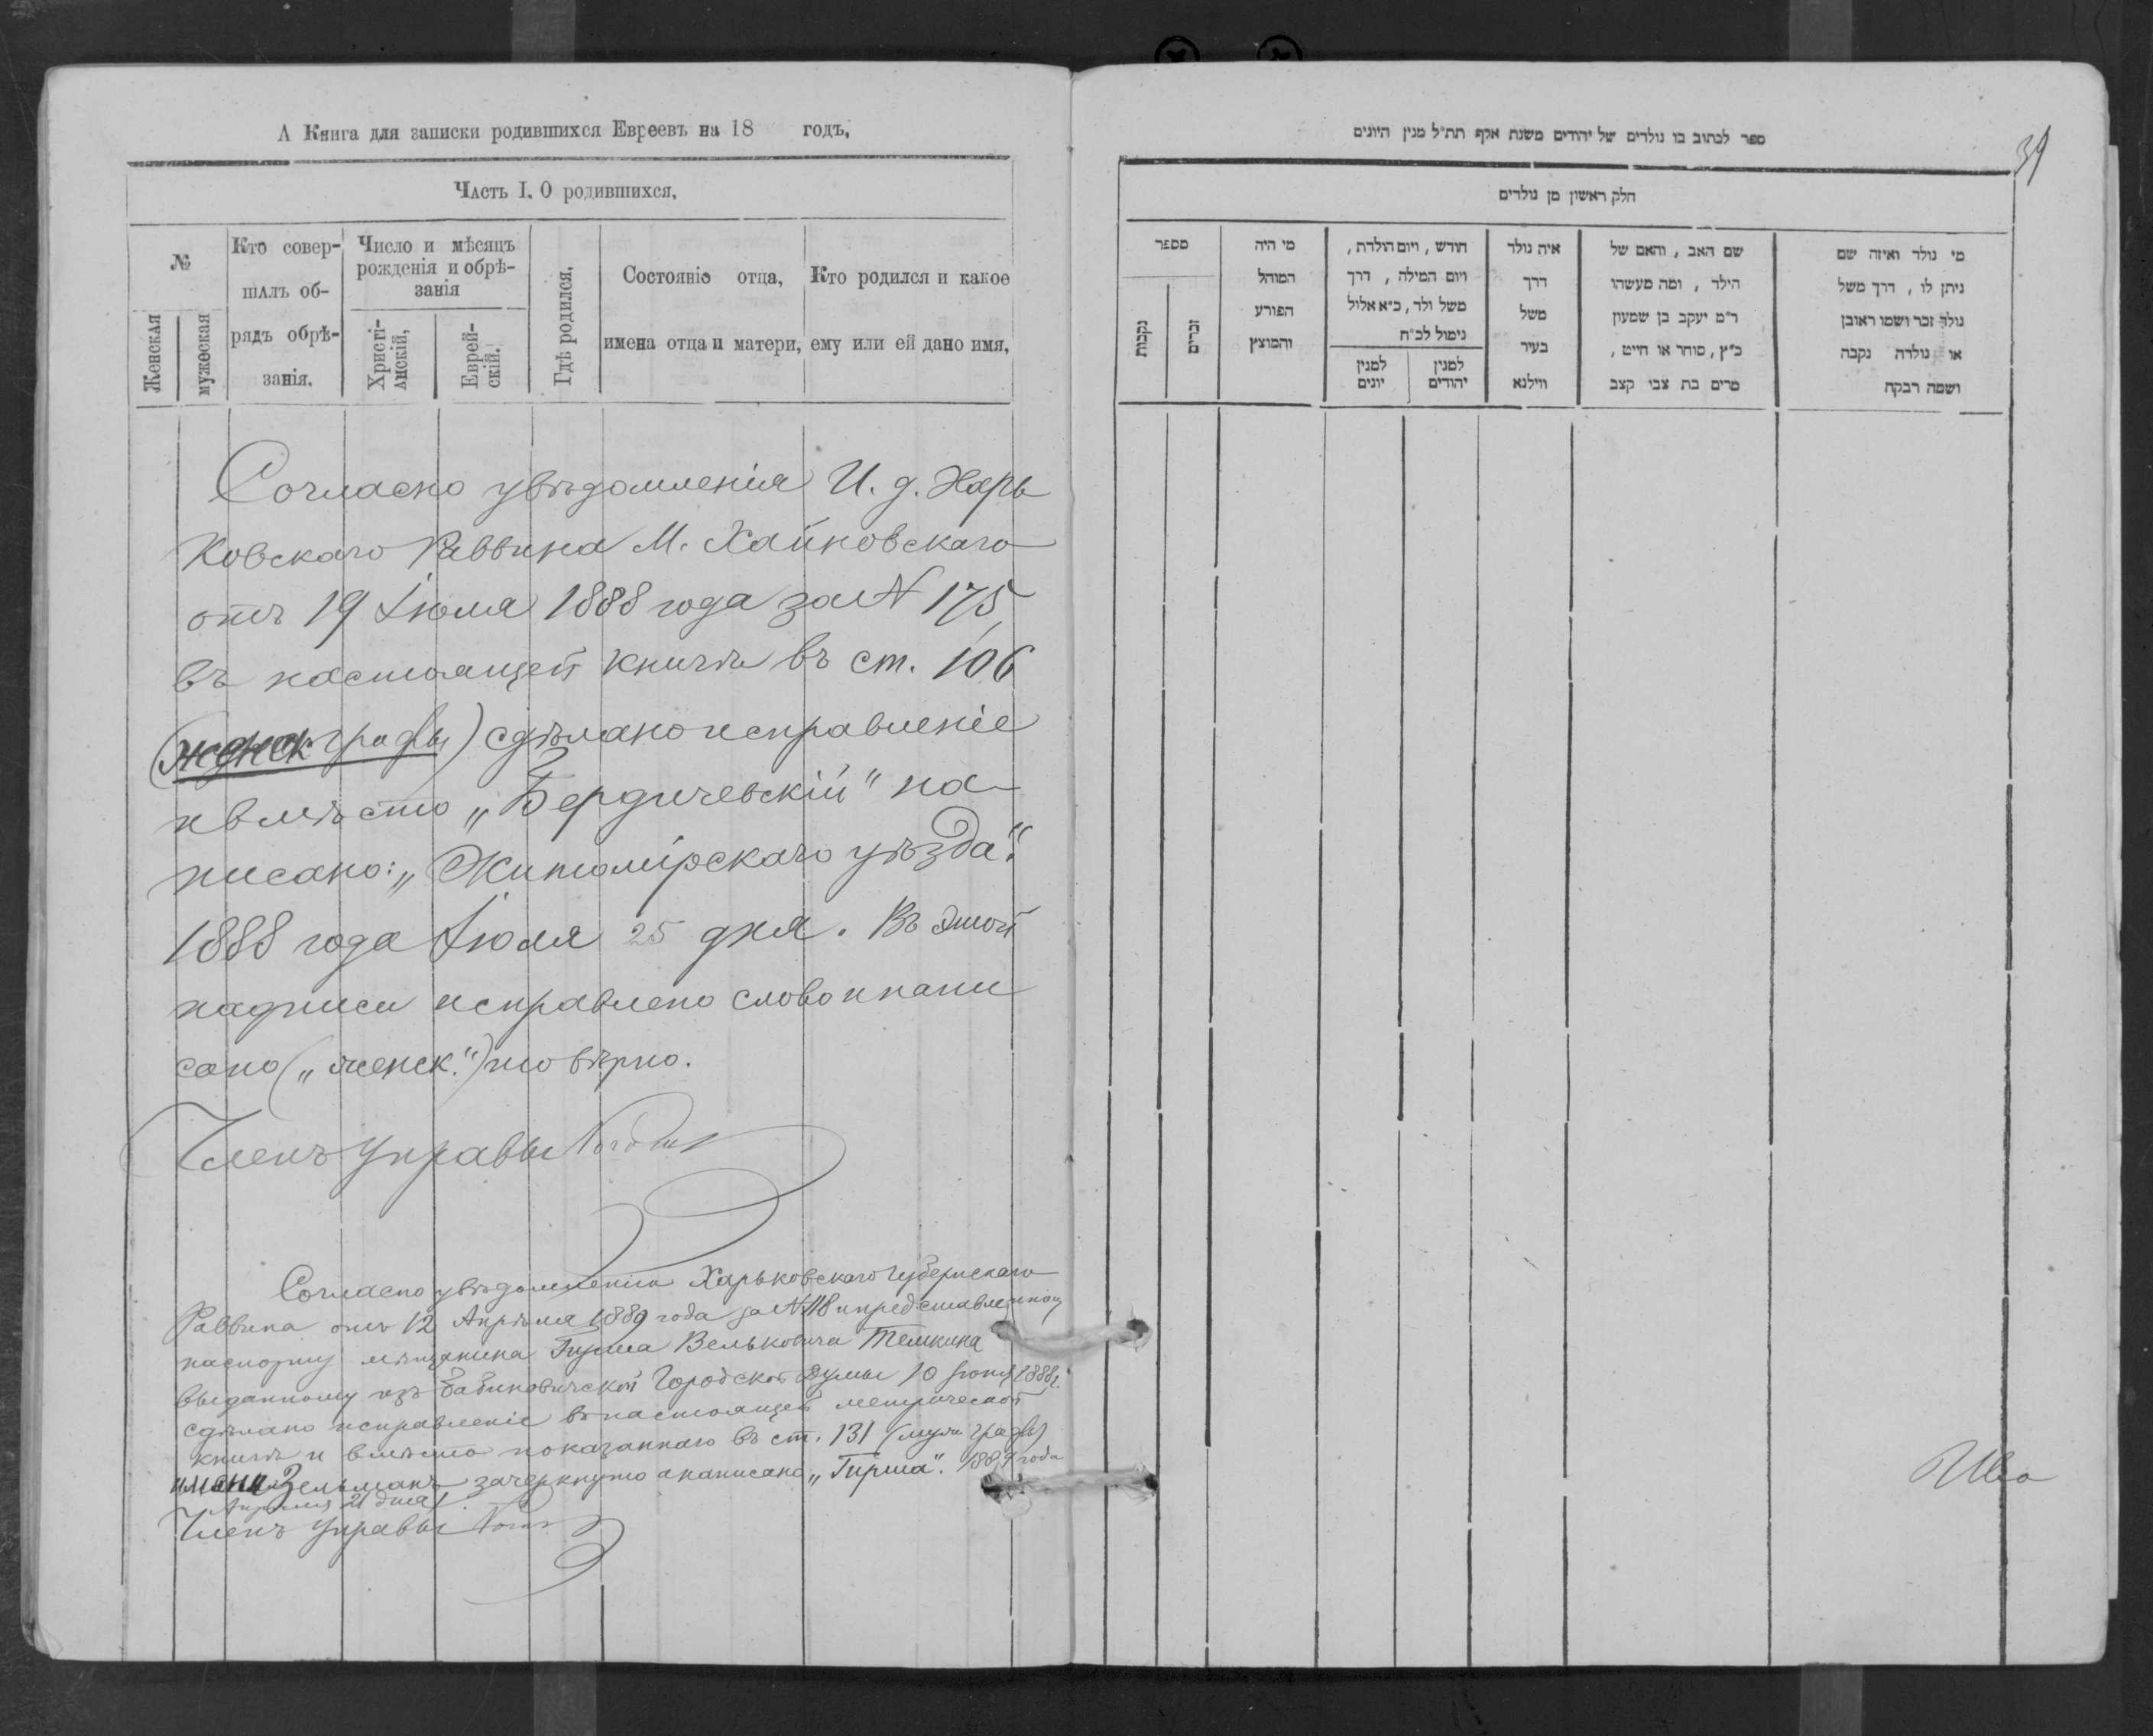 А Книга для записки родившихся Евреевъ на 18 годъ,
Часть I. О родившихся,
№
Женская
мужеская
Кто совер-
шалъ об-
рядъ обрѣ-
занія.
Число и мѣсяцъ
рожденія и обрѣ-
занія
Христі-
анскій,
Еврей-
скій.
Гдѣ родился,
Состояніе отца,
имена отца и матери,
Кто родился и какое
ему или ей дано имя,
Согласно увѣдомленія И. д. Харь
ковскаго Раввина М. Хайновскаго
отъ 19 Іюля 1888 года за N 175,
въ настоящей книгѣ въ ст. 106
(женск графы) сдѣлано исправленіе
и вмѣсто „Бердичевскій" на-
писано: „Житомірскаго уѣзда".
1888 года Іюля 25 дня. Въ этой
надписи исправлено слово и напи
сано („женск.") то вѣрно.
Членъ Управы
Согласно увѣдомленія Харьковскаго Губернскаго
Раввина отъ 12 Апрѣля 1889 года за N 118 и представленному
паспорту мѣщанина Гирша Вельковича Темкина
выданному изъ Бабиновичской Городской Думы 10 Іюня 1888 г.
сдѣлано исправленіе въ настоящей метрической
книгѣ и вмѣсто показаннаго въ ст. 131 (муж. графы)
имени Зельманъ зачеркнуто а написано „Гирша". 1889 года
Апрѣля 21 дня
Членъ Управы
39
ספר לכתוב בו נולדים של יהודים משנת אלף תת״ל מנין היונים
חלק ראשון מן נולדים
מספר
נקבות
זכרים
מי היה
המוהל
הפורע
והמוצץ
חודש , ויום הולדת ,
ויום המילה , דרך
משל ולד , כ״א אלול
נימול לכ״ח
למנין
יונים
למנין
יהודים
איה נולד
דרך
משל
בעיר
ווילנא
שם האב , והאם של
הילד , ומה מעשהו
ר״מ יעקב בן שמעון
כ״ץ , סוחר או חייט ,
מרים בת צבי קצב
מי נולד ואיזה שם
ניתן לו , דרך משל
נולד זכר ושמו ראובן
או נולדה נקבה
ושמה רבקה